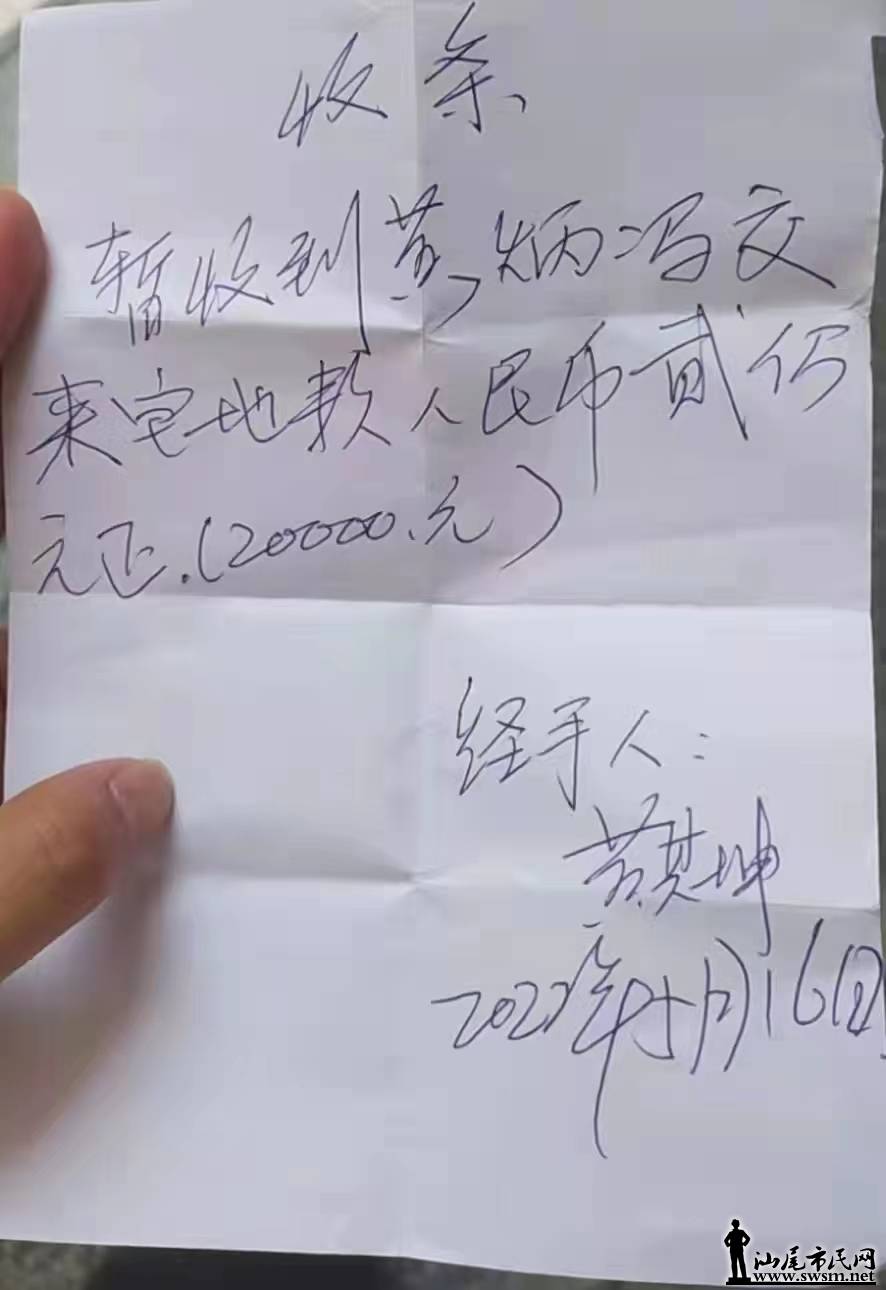 收条
暂收到黄炳冯交
来宅地款人民币贰仟
元正.(20000.元)
经手人:
黄其坤
2022年5月16日
汕尾市民网
www.swsm.net